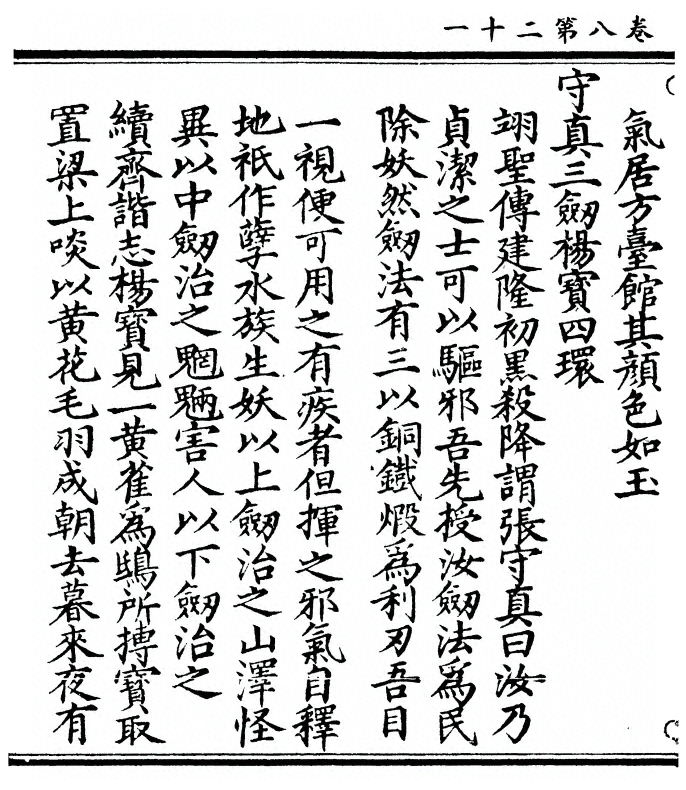 卷八第二十一
氣居方臺館其顏色如玉
守真三劔楊寶四環
翊聖傳建隆初黑殺降謂張守真曰汝乃
貞潔之士可以驅邪吾先授汝劔法為民
除妖然劔法有三以銅鐵煅為利刃吾目
一視便可用之有疾者但揮之邪氣自釋
地祇作孽水族生妖以上劔治之山澤怪
異以中劔治之魍魎害人以下劔治之
續齊諧志楊寶見一黃雀為鴟所搏寶取
置梁上啖以黃花毛羽成朝去暮來夜有